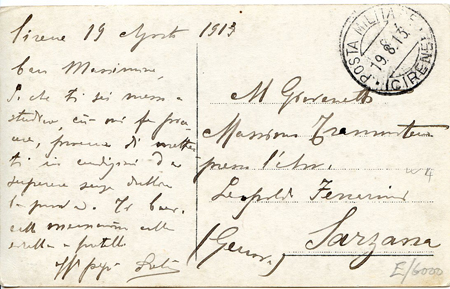 Cirene 19 Agosto 1913
Caro Massimino,
So che ti sei messo a
studiare, ciò mi fa pia
cere, procura di metter
ti in condizioni da
superare senza dubbio
la prova. Ti bacio
colla mamma colle
sorelle e fratelli
POSTA MILITARE
19.8.13
(CIRENE)
Al Giovanetto
Massimo Tramonti
presso l'Avv.
Leopoldo Ferrarini
Sarzana
(Genova)
E/6000